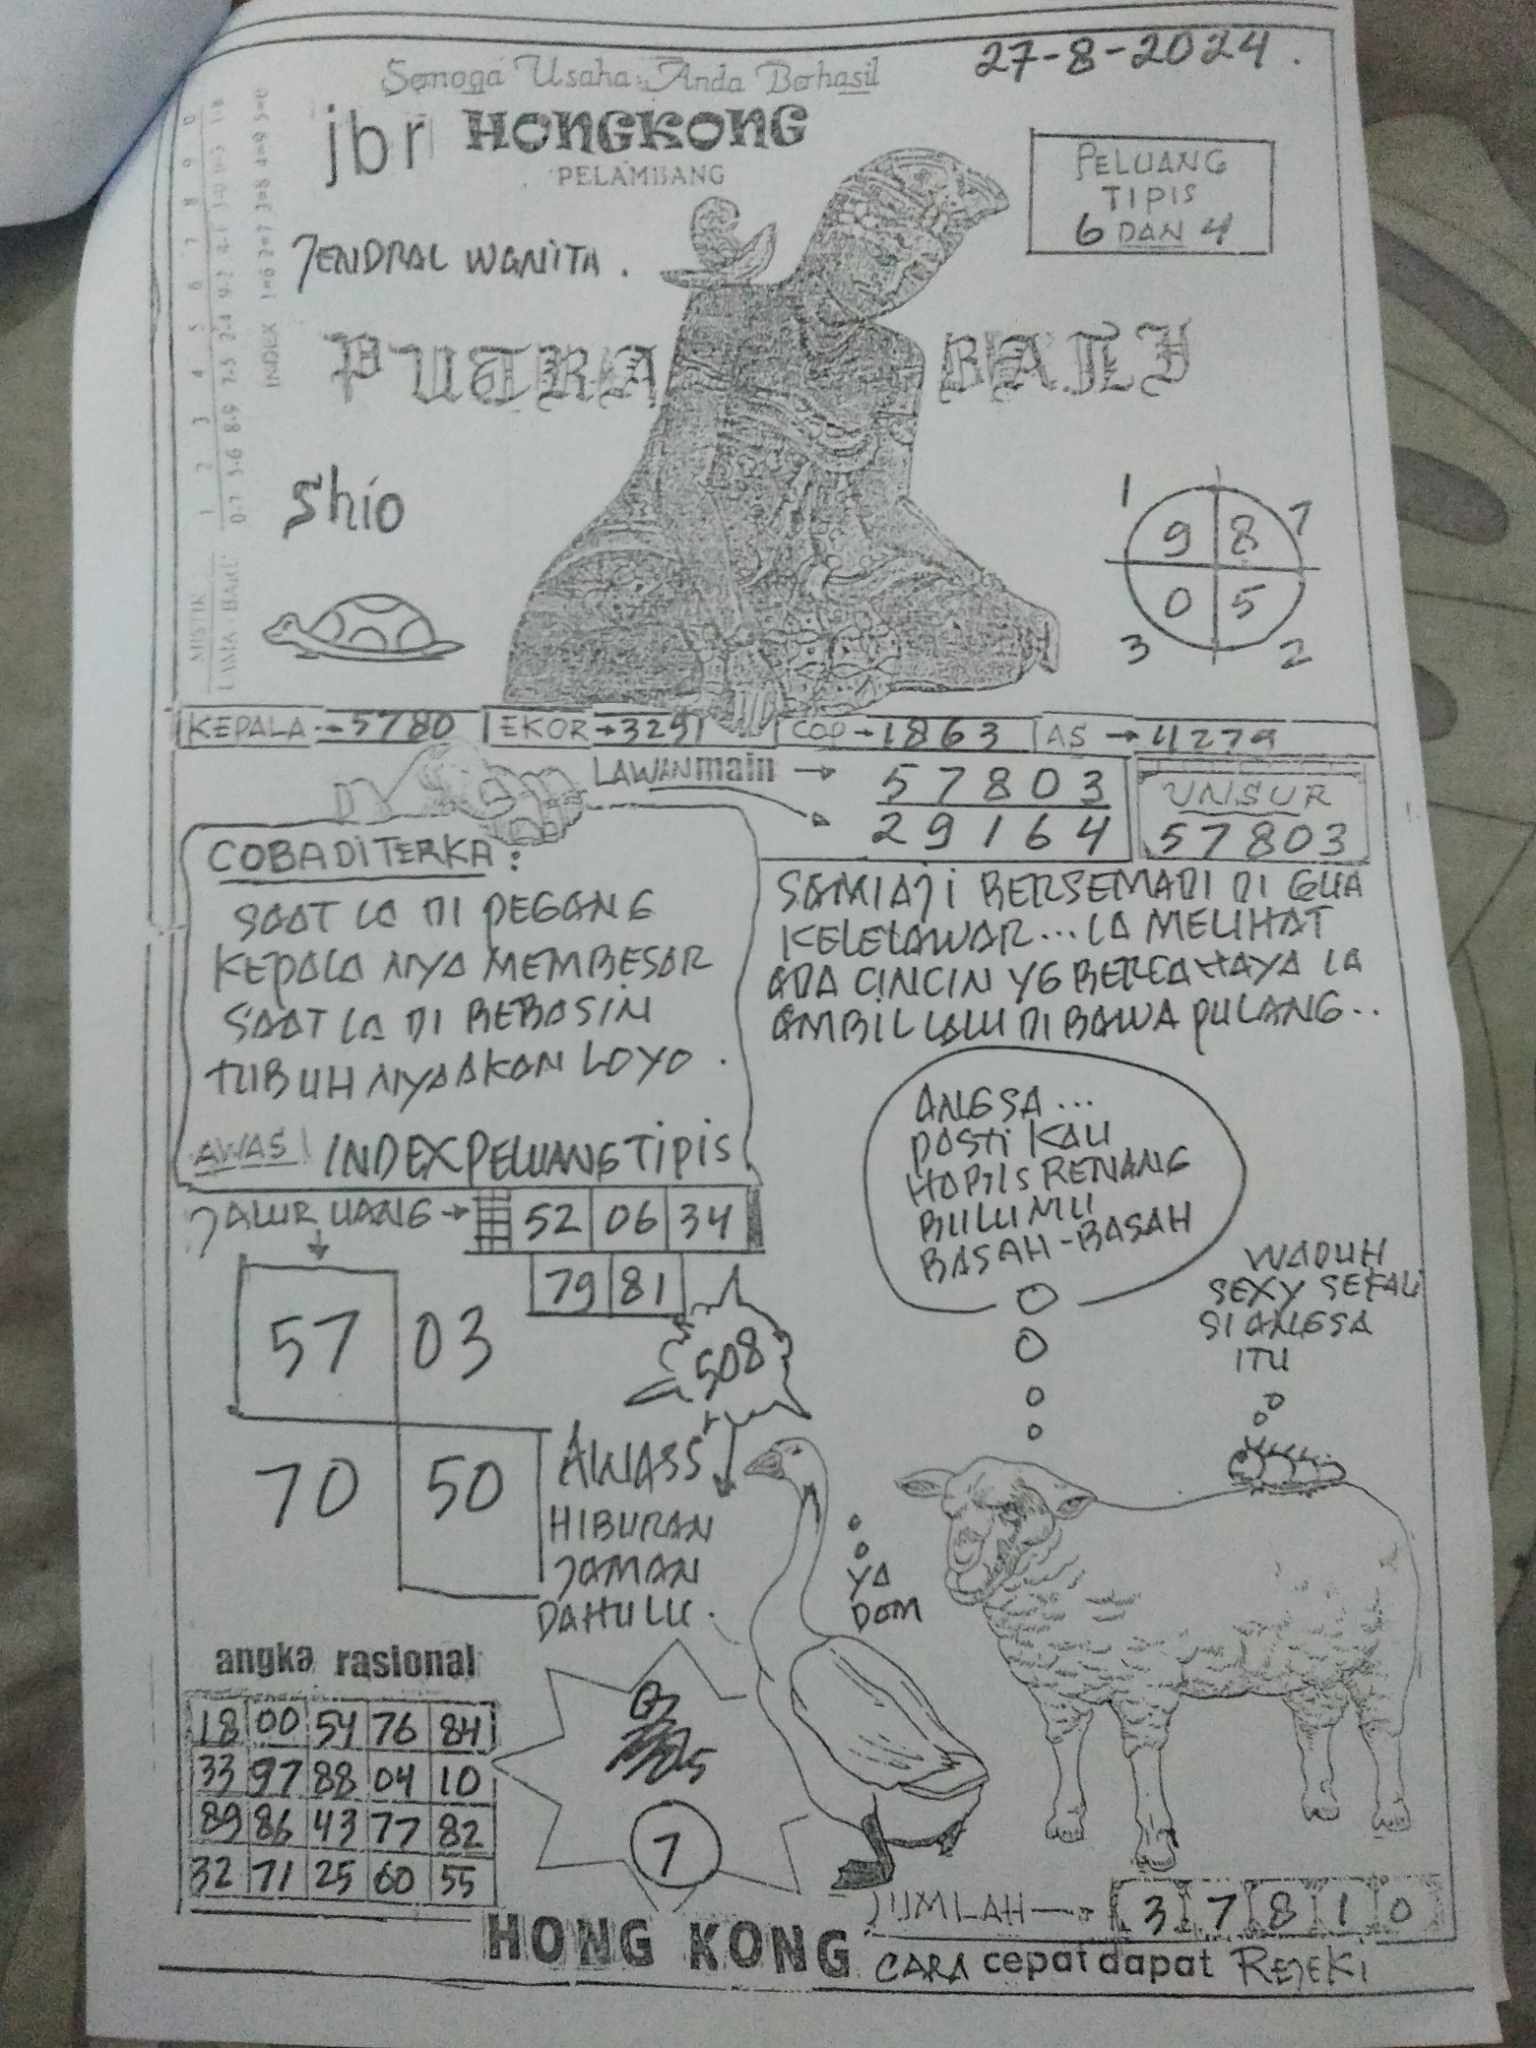 27-8-2024.
Semoga Usaha Anda Berhasil
jbr HONGKONG
PELAMBANG
PELUANG
TIPIS
6 DAN 4
JENDRAL WANITA.
PUTRA BALI
Shio
MISTIK 1 2 3 4 5 6 7 8 9 0
LAMA - BARU
INDEX 1=6 2=7 3=8 4=9 5=0
1 7
9 8
0 5
3 2
KEPALA → 5780 EKOR → 3291 COP → 1863 AS → 4279
LAWAN main → 57803
29164
UNSUR
57803
COBA DI TERKA:
SAAT IA DI PEGANG
KEPALA NYA MEMBESAR
SAAT IA DI BEBASIN
TUBUH NYA AKAN LOYO.
AWAS! INDEX PELUANG TIPIS
SAMIAJI BERSEMADI DI GUA
KELELAWAR... IA MELIHAT
ADA CINCIN YG BERCAHAYA IA
AMBIL LALU DI BAWA PULANG..
JALUR UANG → 52 06 34
79 81
57 03
70 50
508
AWASS
HIBURAN
JAMAN
DAHULU.
ANGSA...
PASTI KAU
HABIS RENANG
BULUMU
BASAH-BASAH
WADUH
SEXY SEKALI
SI ANGSA
ITU
YA
DOM
angka rasional
18 00 54 76 84
33 97 88 04 10
89 86 43 77 82
32 71 25 60 55
7
JUMLAH → 3 7 8 1 0
HONG KONG CARA cepat dapat REJEKI